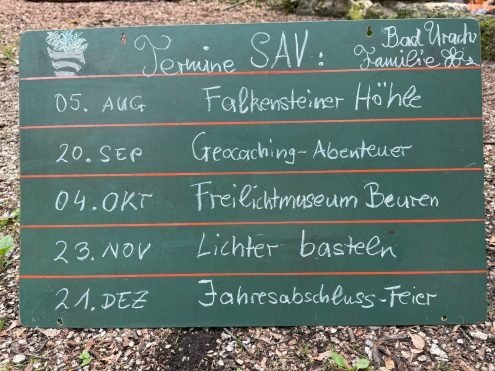 Termine SAV: Bad Urach
Familie
05. AUG Falkensteiner Höhle
20. SEP Geocaching-Abenteuer
04. OKT Freilichtmuseum Beuren
23. NOV Lichter basteln
21. DEZ Jahresabschluss-Feier